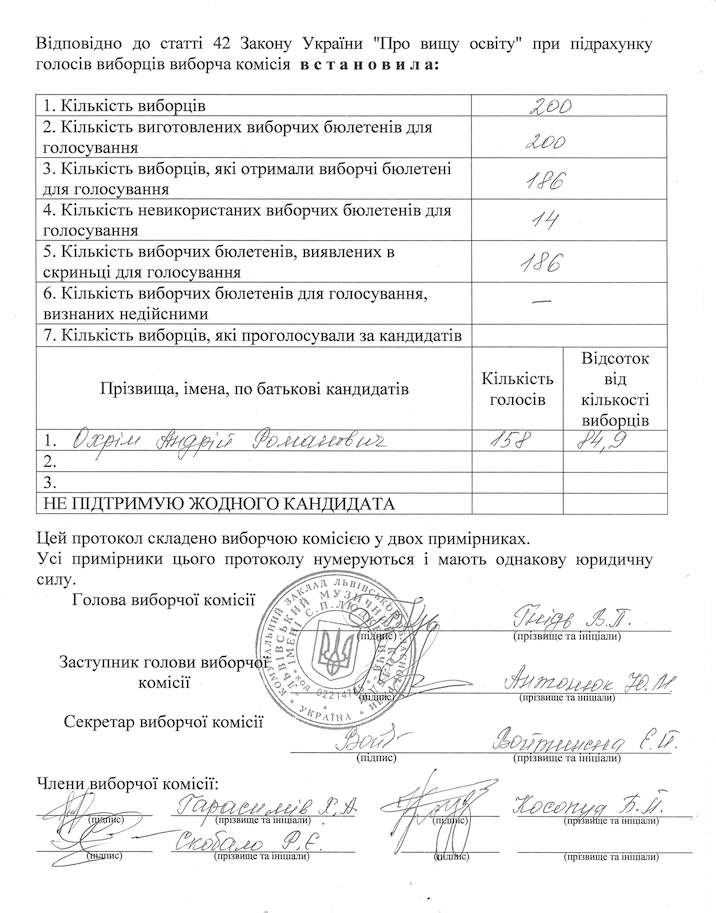 Відповідно до статті 42 Закону України "Про вищу освіту" при підрахунку
голосів виборців виборча комісія в с т а н о в и л а:
1. Кількість виборців 200
2. Кількість виготовлених виборчих бюлетенів для
голосування 200
3. Кількість виборців, які отримали виборчі бюлетені
для голосування 186
4. Кількість невикористаних виборчих бюлетенів для
голосування 14
5. Кількість виборчих бюлетенів, виявлених в
скриньці для голосування 186
6. Кількість виборчих бюлетенів для голосування,
визнаних недійсними —
7. Кількість виборців, які проголосували за кандидатів
Прізвища, імена, по батькові кандидатів
Кількість
голосів
Відсоток
від
кількості
виборців
1. Охрім Андрій Романович 158 84,9
2.
3.
НЕ ПІДТРИМУЮ ЖОДНОГО КАНДИДАТА
Цей протокол складено виборчою комісією у двох примірниках.
Усі примірники цього протоколу нумеруються і мають однакову юридичну
силу.
Голова виборчої комісії Гнідь В.П.
(підпис) (прізвище та ініціали)
Заступник голови виборчої
комісії Антонюк Ю.М.
(підпис) (прізвище та ініціали)
Секретар виборчої комісії
(підпис) (прізвище та ініціали)
Члени виборчої комісії:
Гарасимів Х.А Косопуд Б.П.
(підпис) (прізвище та ініціали) (підпис) (прізвище та ініціали)
Скобало Р.Є.
(підпис) (прізвище та ініціали) (підпис) (прізвище та ініціали)